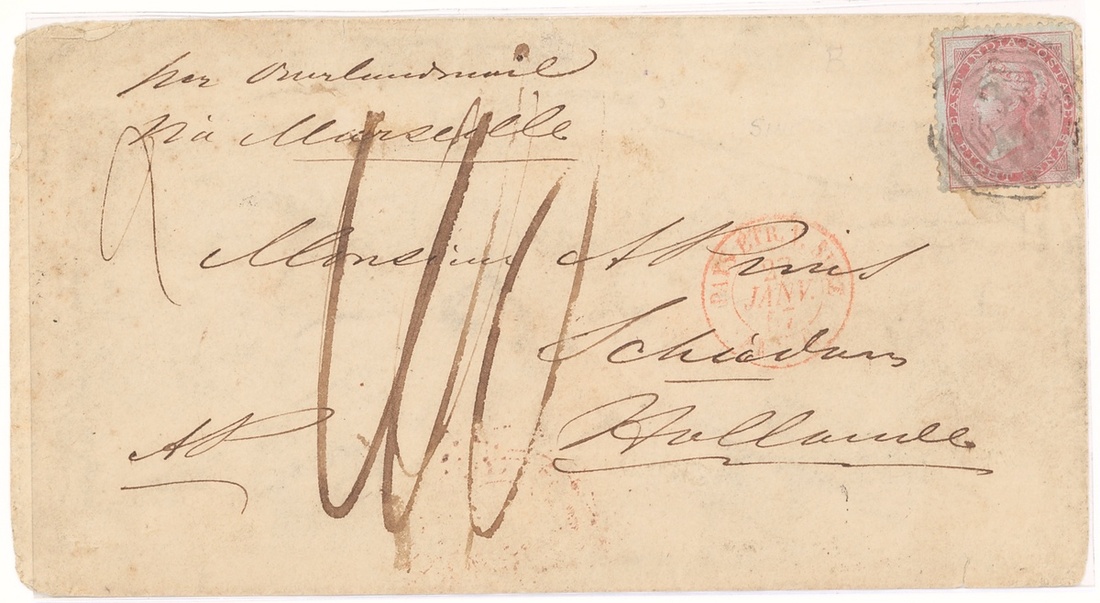 per Overlandmail
via Marseille
Monsieur A Prins
Schiedam
Hollande
AP
EAST INDIA POSTAGE
EIGHT ANNAS
JANV.